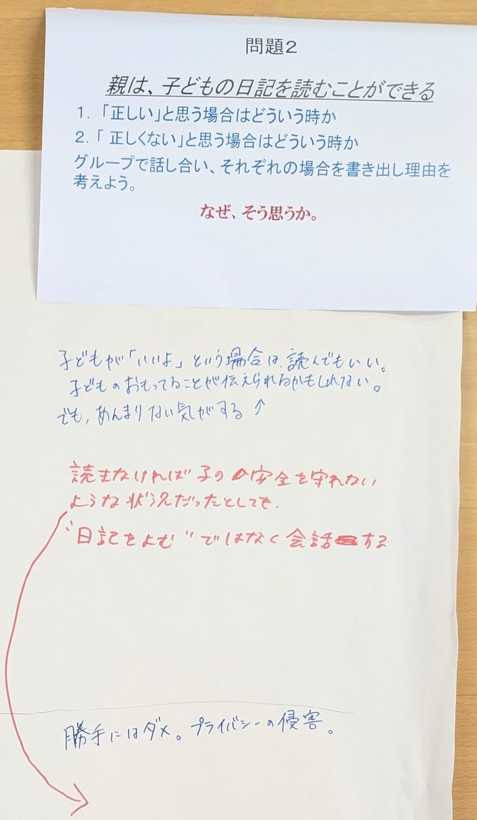 問題2
親は、子どもの日記を読むことができる
1. 「正しい」と思う場合はどういう時か
2. 「 正しくない」と思う場合はどういう時か
グループで話し合い、それぞれの場合を書き出し理由を
考えよう。
なぜ、そう思うか。
子どもが「いいよ」という場合は、読んでもいい。
子どものおもってることが伝えられるかもしれない。
でも、あんまりない気がする↑
読まなければ子の安全を守れない
ような状況だったとしても、
"日記をよむ"ではなく会話する
勝手にはダメ。プライバシーの侵害。